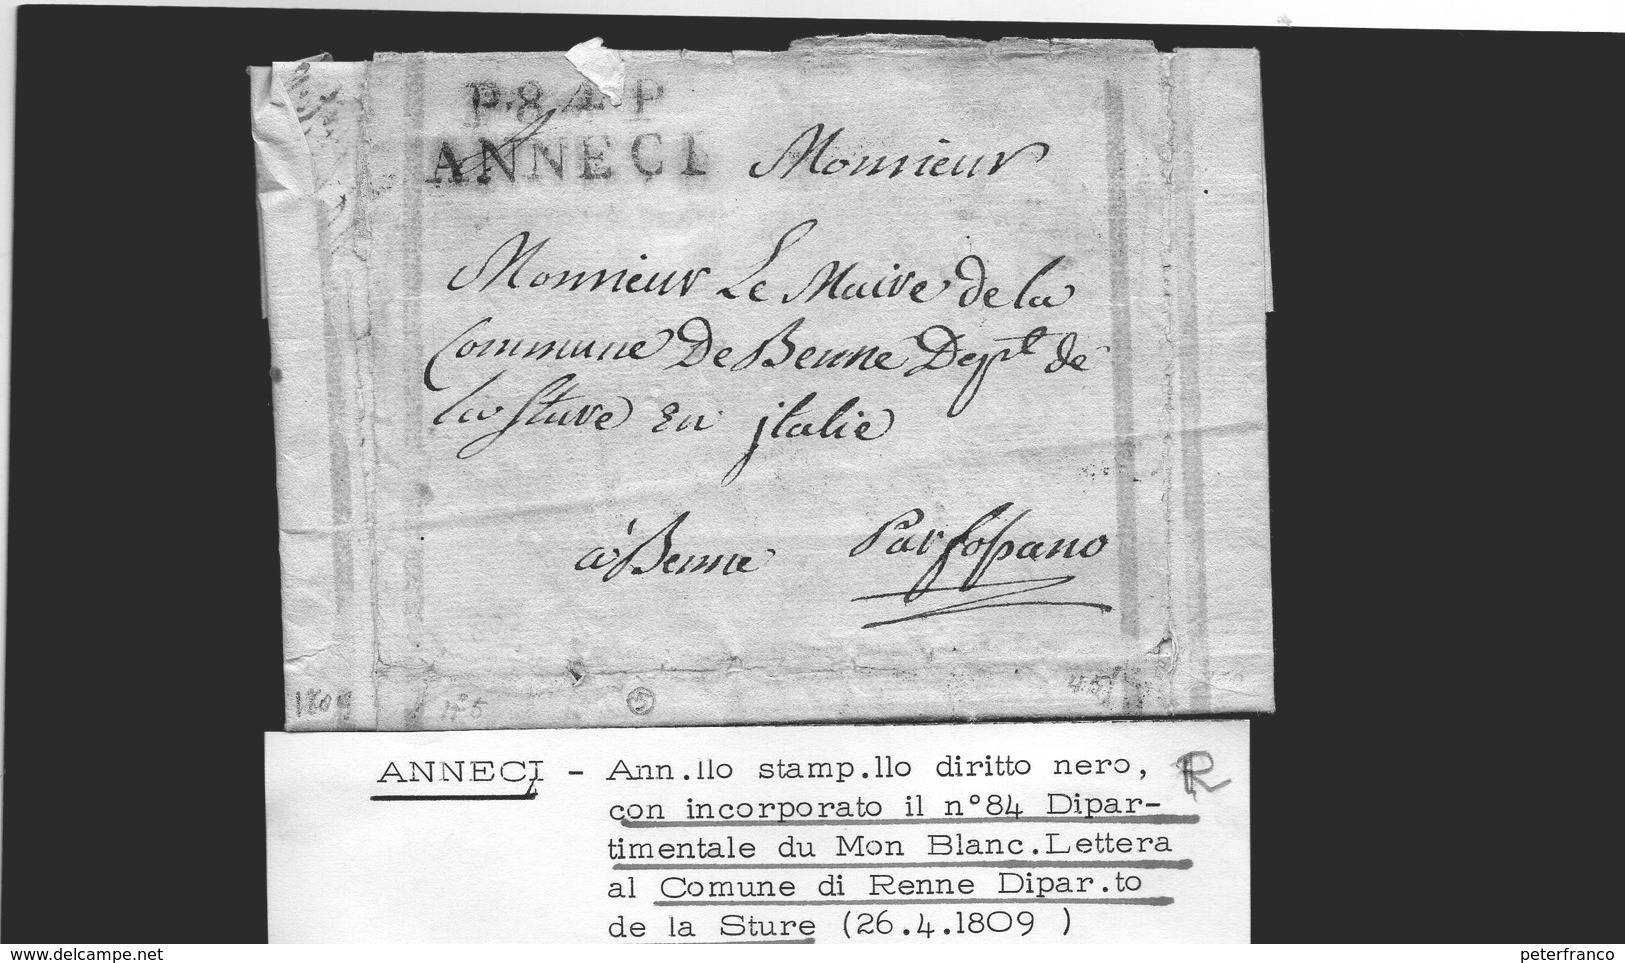 P.84.P
ANNECI
Monsieur
Monsieur Le Maire de la
Commune De Benne Dept de
la Sture En jtalie
à Benne
Par fossano
1809
n° 5
5
45
ANNECI - Ann.llo stamp.llo diritto nero,
con incorporato il n°84 Dipar-
timentale du Mon Blanc.Lettera
al Comune di Renne Dipar.to
de la Sture (26.4.1809 )
R
www.delcampe.net
peterfranco